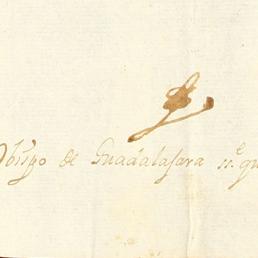 Obispo de Guadalaxara